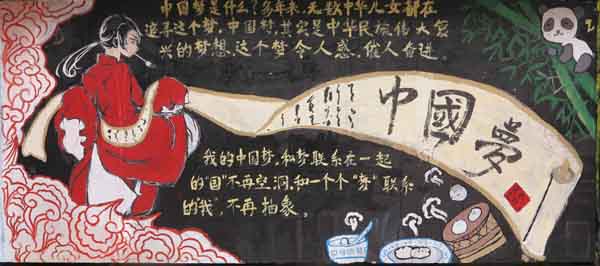 中国梦是什么?多年来,无数中华儿女都在
追寻这个梦,中国梦,其实是中华民族伟大复
兴的梦想,这个梦令人感,催人奋进。
中國夢
我的中国梦,和梦联系在一起
的国"不再空洞,和一个个"梦"联系
的我",不再抽象。